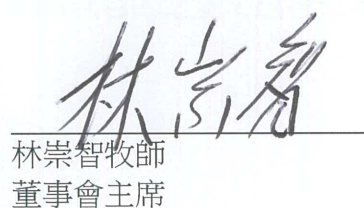 林崇智
林崇智牧師
董事會主席